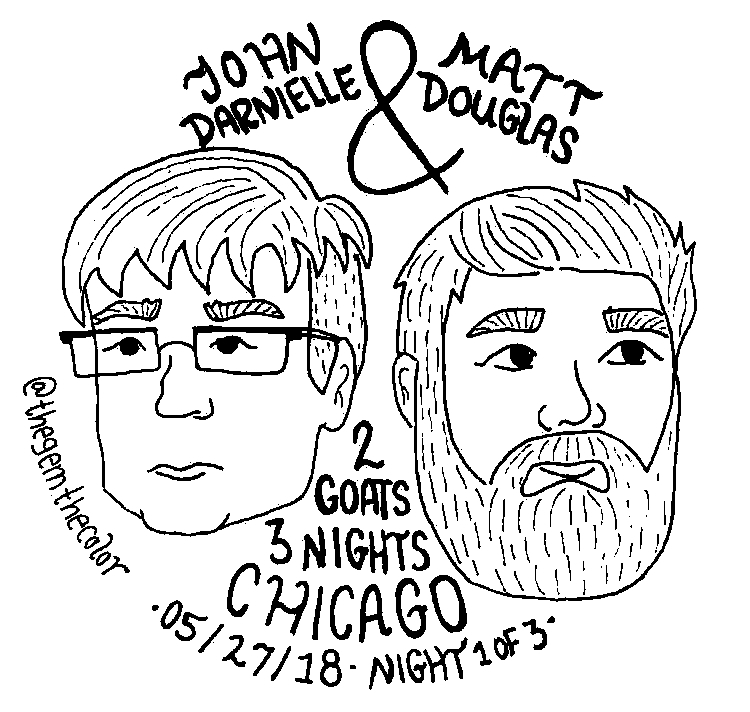 JOHN
DARNIELLE
&
MATT
DOUGLAS
@thegemthecolor
2
GOATS
3 NIGHTS
CHICAGO
·05/27/18· NIGHT 1 OF 3·